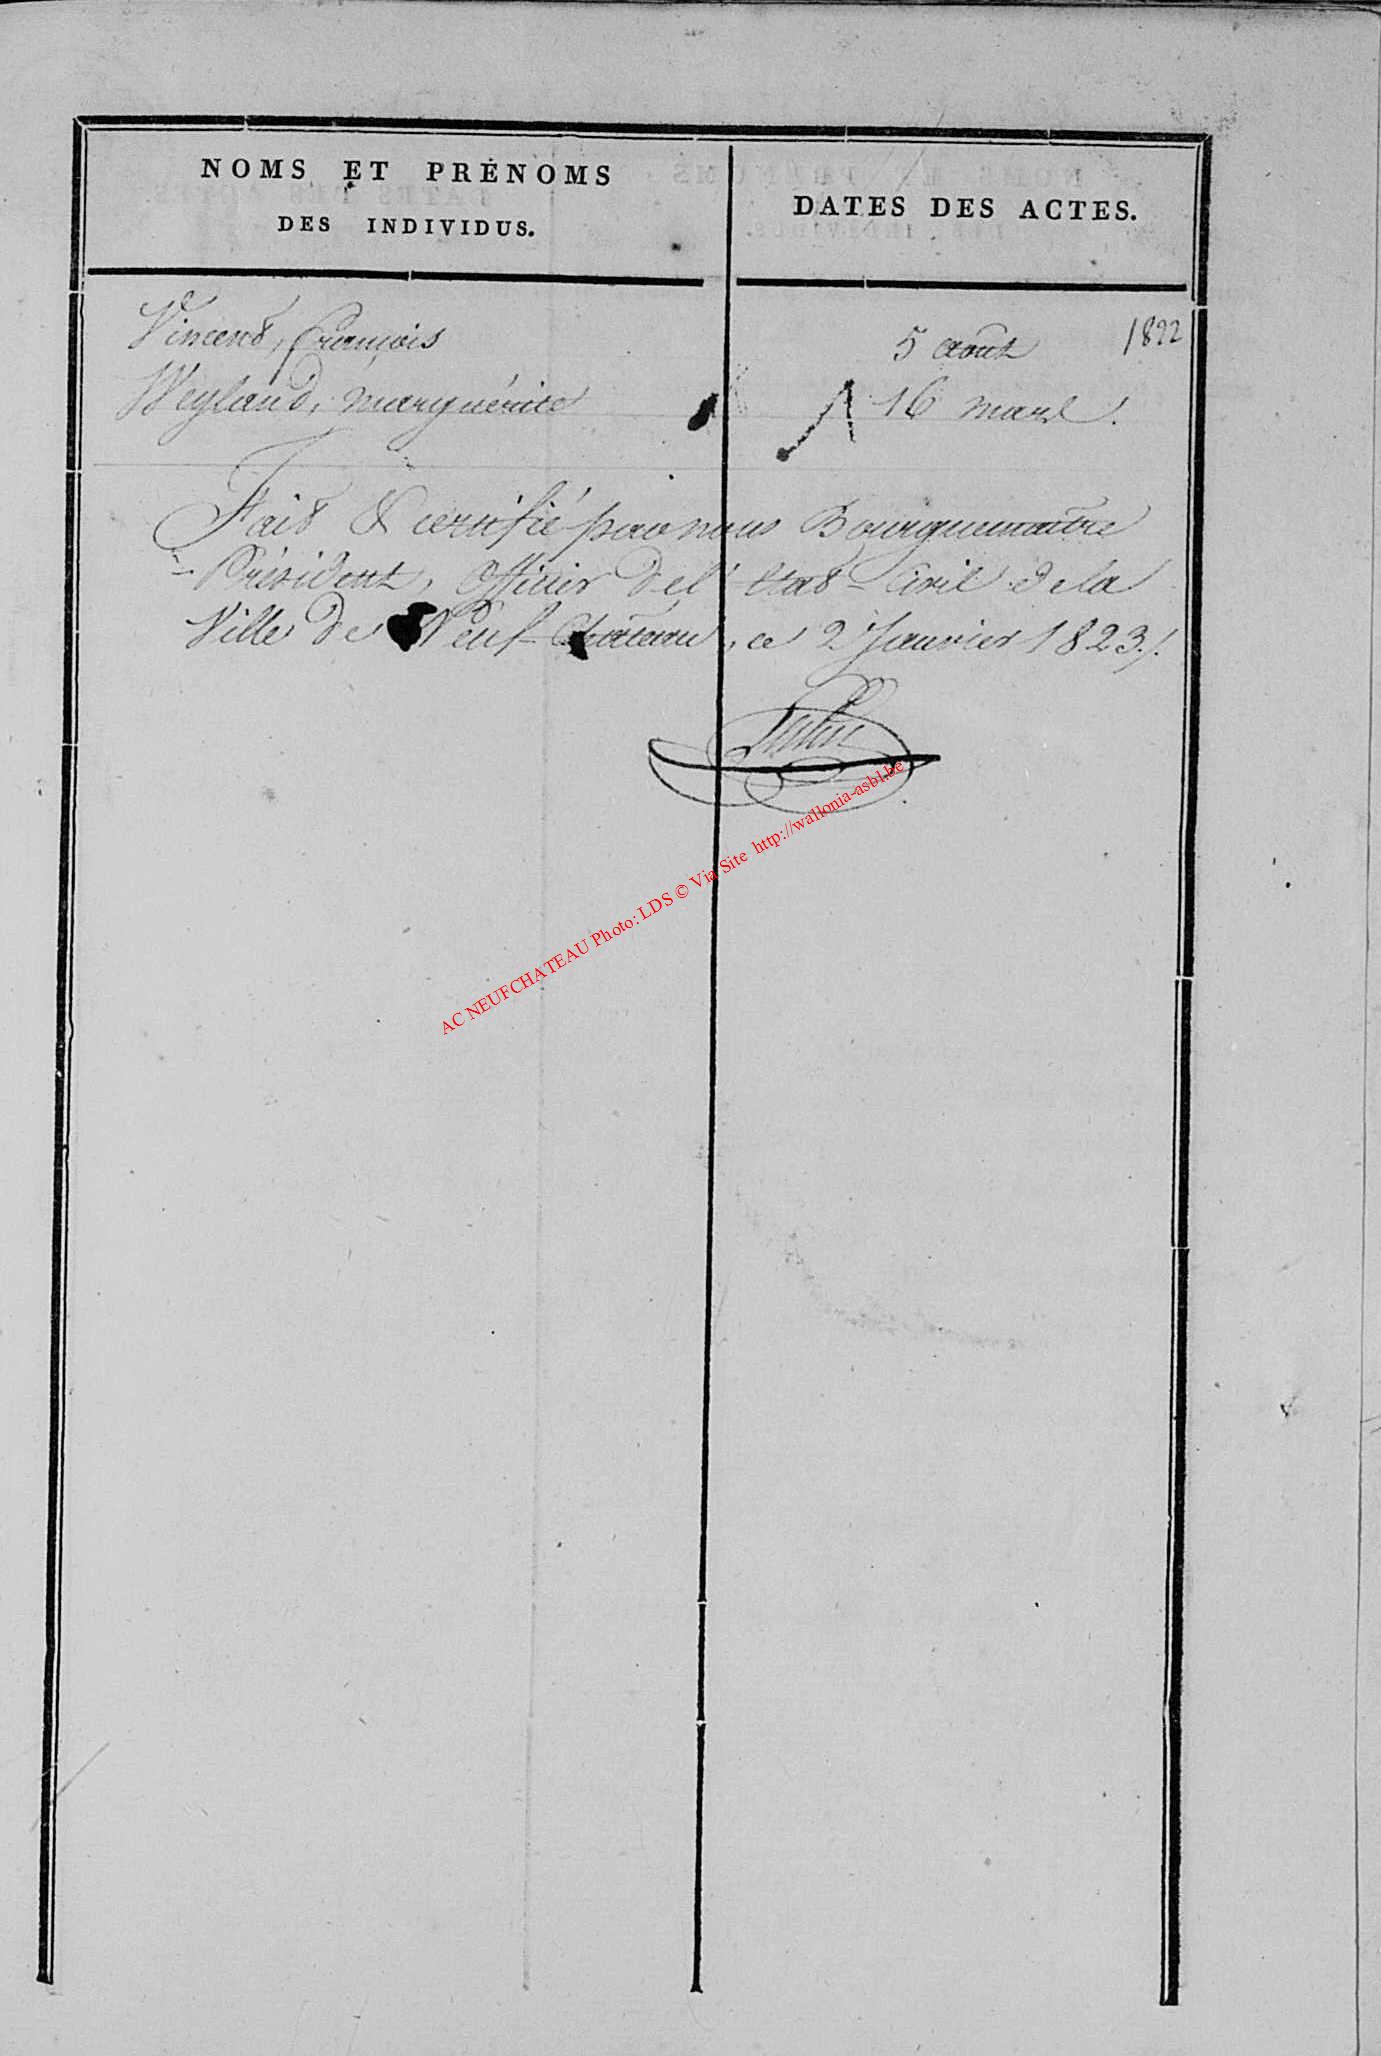 NOMS ET PRÉNOMS
DES INDIVIDUS.
DATES DES ACTES.
Vincent, François 5 août 1822
Weyland, Marguérite 16 mars.
Fait & certifié par nous Bourguemaître
Président, officier de l'état-Civil de la
Ville de Neuf-Château, ce 2 Janvier 1823./.
AC NEUFCHATEAU Photo: LDS © Via Site http://wallonia-asbl.be